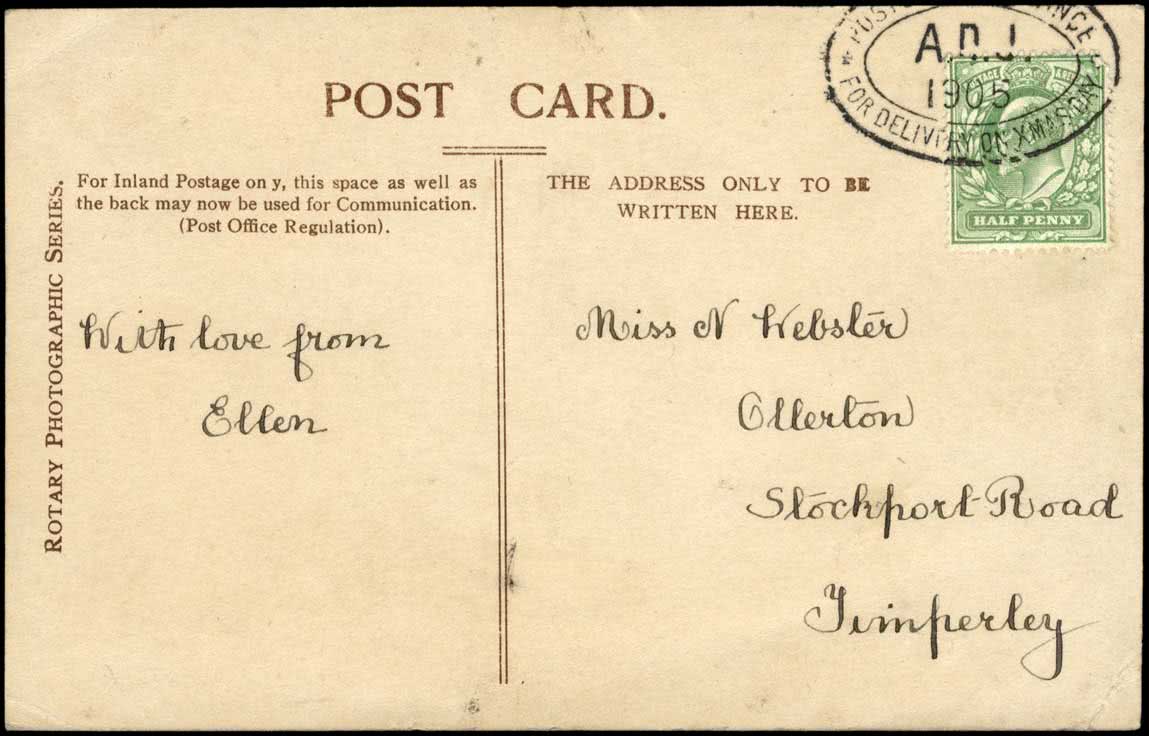 POST CARD.
ROTARY PHOTOGRAPHIC SERIES.
For Inland Postage on y, this space as well as
the back may now be used for Communication.
(Post Office Regulation).
With love from
Ellen
THE ADDRESS ONLY TO BE
WRITTEN HERE.
Miss N Webster
Ollerton
Stockport Road
Timperley
1905
FOR DELIVERY ON XMAS DAY
POSTAGE
HALF PENNY